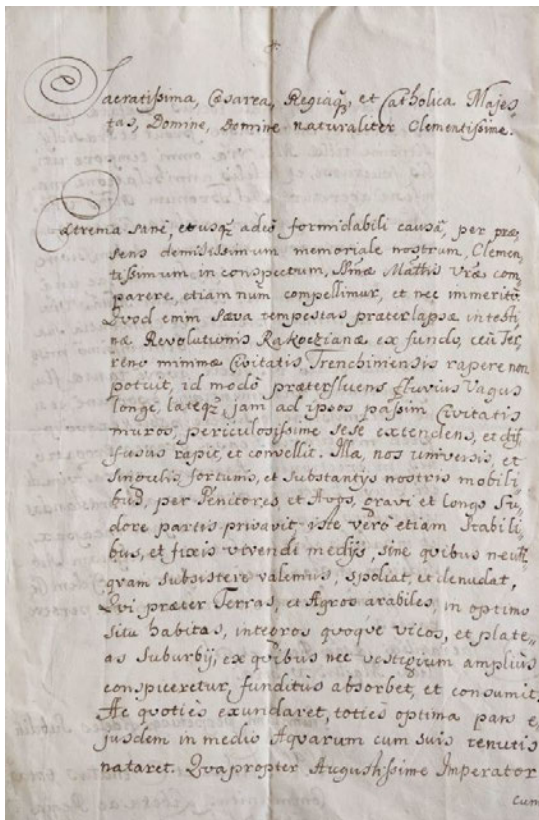 Sacratissima, Cæsarea, Regiaq3, et Catholica Majes-
tas, Domine, Domine naturaliter Clementissime.
Extrema sanè, et usq3 adeò formidabili causâ, per præ-
sens demississimum memoriale nostrum, Clemen-
tissimum in conspectum, Mattis Vræ com-
parere, etiam num compellimur, et nec immeritò.
Quod enim sæva tempestas præterlapsæ intesti
næ Revolutionis Rakoczianæ ex fundo, ceù Ter,
reno minimæ Civitatis Trenchiniensis rapere non
potuit, id modò præterfluens Fluvius Vagus
longè, lateq3, jam ad ipsos passim Civitatis
muros, periculosissime sese extendens, et dif,
fusus rapit, et convellit. Illa, nos universis, et
singulis fortunis, et substantijs nostris mobili
bus, per Genitores et Avos, gravi et longo su,
dore partis privavit, iste verò etiam stabili,
bus, et fixis vivendi medijs, sine quibus neuti,
quam subsistere valemus, spoliat, et denudat,
Qui præter Terras, et Agros arabiles, in optimo
situ habitas, integros quoque vicos, et plate-
as Suburbij, ex quibus nec vestigium ampliùs
conspiceretur, funditùs absorbet, et consumit.
Ac quoties exundaret, toties optima pars e,
jusdem in medio Aquarum cum suis tenutis
nataret. Quapropter Augustissime Imperator
Cum